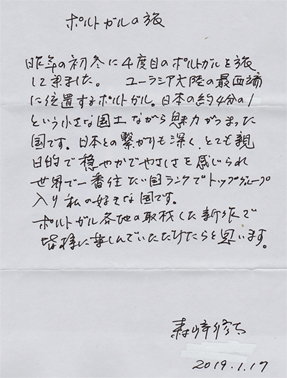 ポルトガルの旅
昨年の初冬に4度目のポルトガルを旅
して来ました。 ユーラシア大陸の最西端
に位置するポルトガル。日本の約4分の1
という小さな国土ながら魅力がつまった
国です。日本との繋がりも深く、とても親
日的で穏やかでやさしさを感じられ
世界で一番住たい国ランクでトップグループ
入り私の好きな国です。
ポルトガル各地の取材した新作で
皆様に楽しんでいただけたらと思います。
2019.1.17